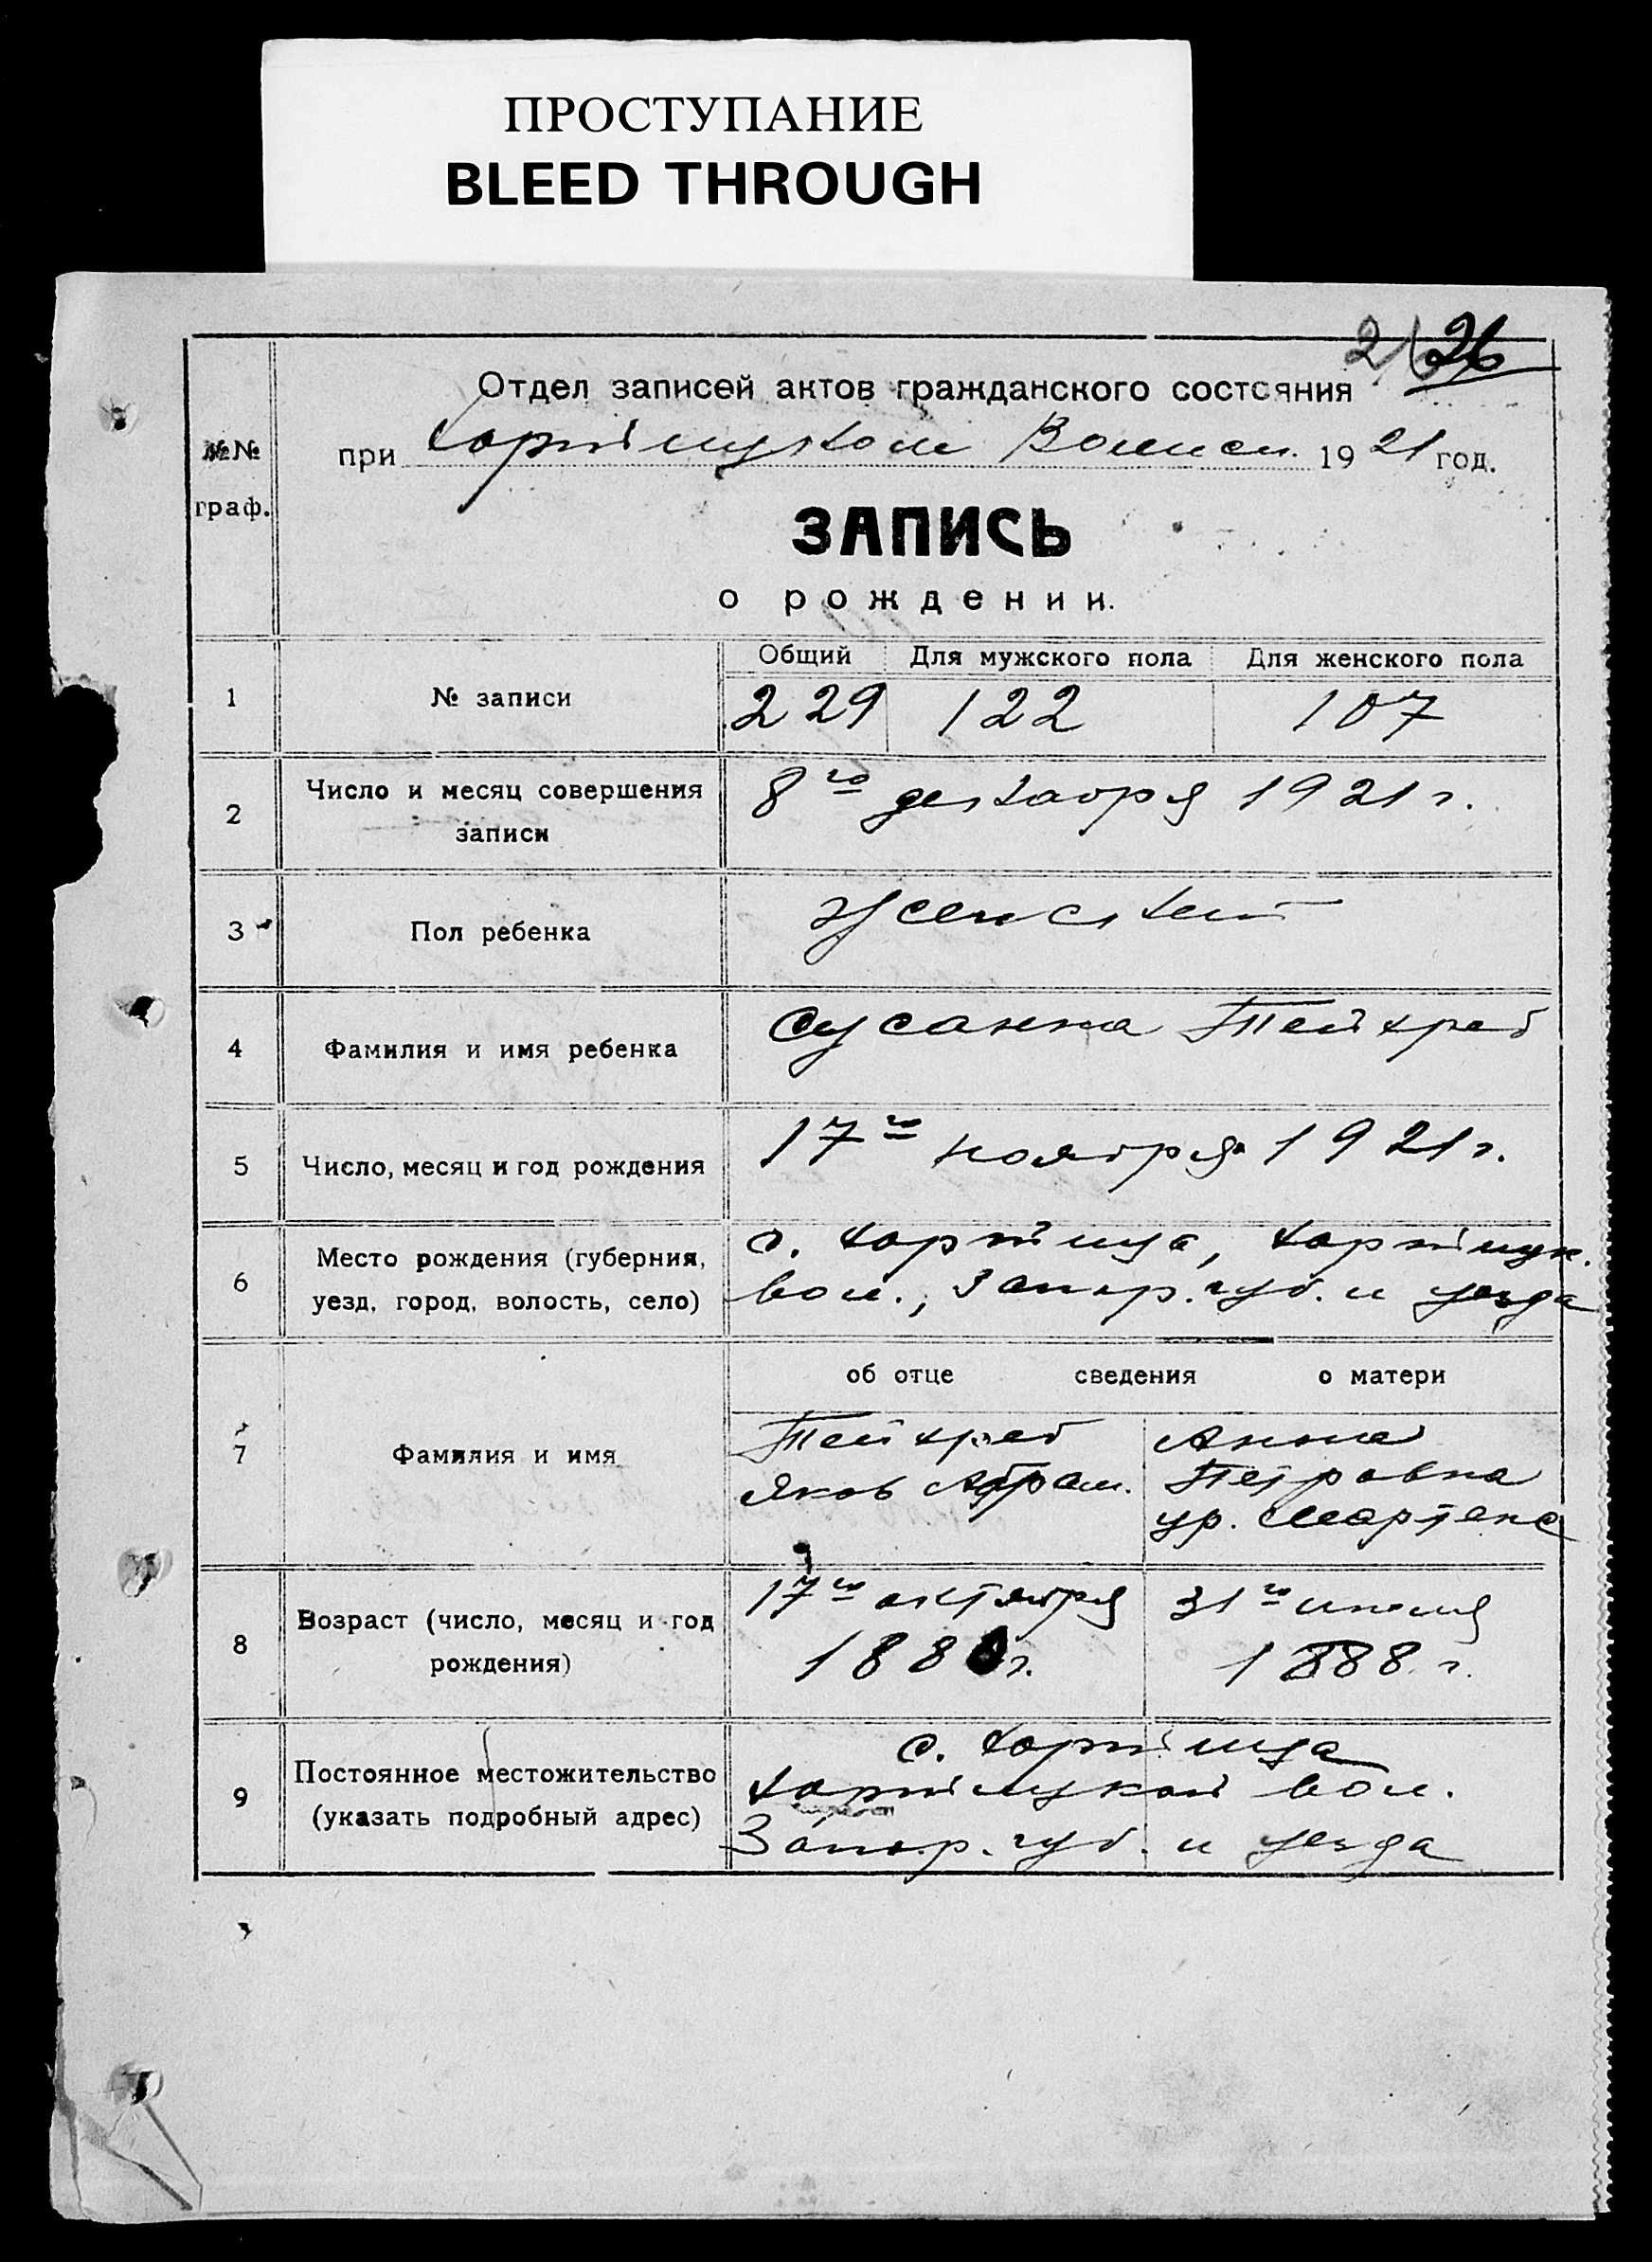 ПРОСТУПАНИЕ
BLEED THROUGH
26
Отдел записей актов гражданского состояния
№№ граф.
при Хортицком Волисп. 1921 год.
ЗАПИСЬ
о рождении.
Общий Для мужского пола Для женского пола
1 № записи 229 122 107
2 Число и месяц совершения 8го декабря 1921 г.
записи
3 Пол ребенка Женский
4 Фамилия и имя ребенка Сусанна Тейхреб
5 Число, месяц и год рождения 17го ноября 1921 г.
6 Место рождения (губерния, с. Хортица, Хортицк.
уезд, город, волость, село) вол., Запор. губ. и уезда
об отце сведения о матери
7 Фамилия и имя Тейхреб Анна
Яков Абрам. Петровна
ур. Мартенс
8 Возраст (число, месяц и год 17го октября 31го
рождения) 1888 г.
9 Постоянное местожительство с. Хортица
(указать подробный адрес) Хортицкой вол.
Запор. губ. и уезда